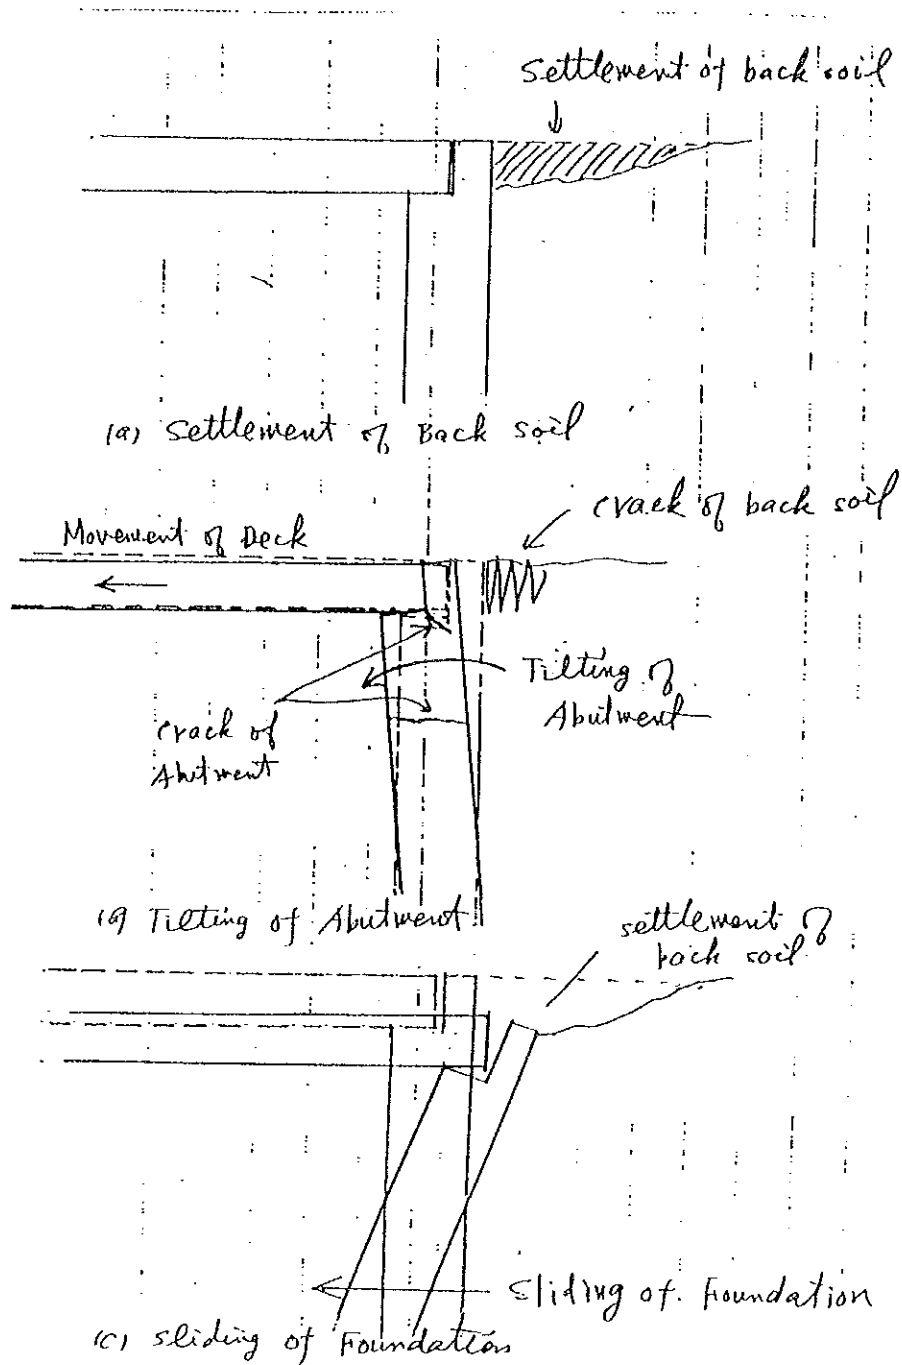 Settlement of back soil
(a) Settlement of Back Soil
crack of back soil
Movement of Deck
Tilting of
Abutment
crack of
Abutment
Tilting of Abutment
settlement of
back soil
Sliding of Foundation
(c) Sliding of Foundation